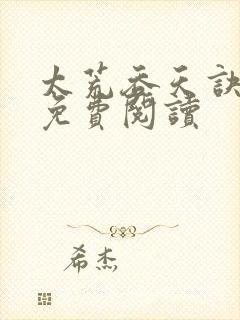 太荒吞天訣
免費閱讀
希杰